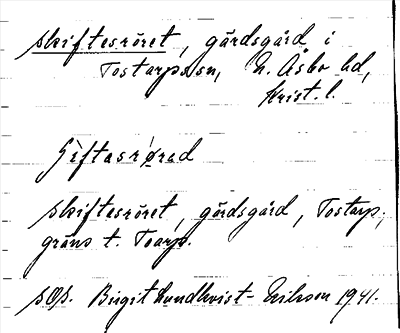 skiftesröret, gärdsgård i
Tostarps sn, N. Åsbo hd,
Krist. l.
skiftesröret, gärdsgård, Tostarp,
gräns t. Toarp.
SOA. Birgit Lundkvist-Eriksson 1941.